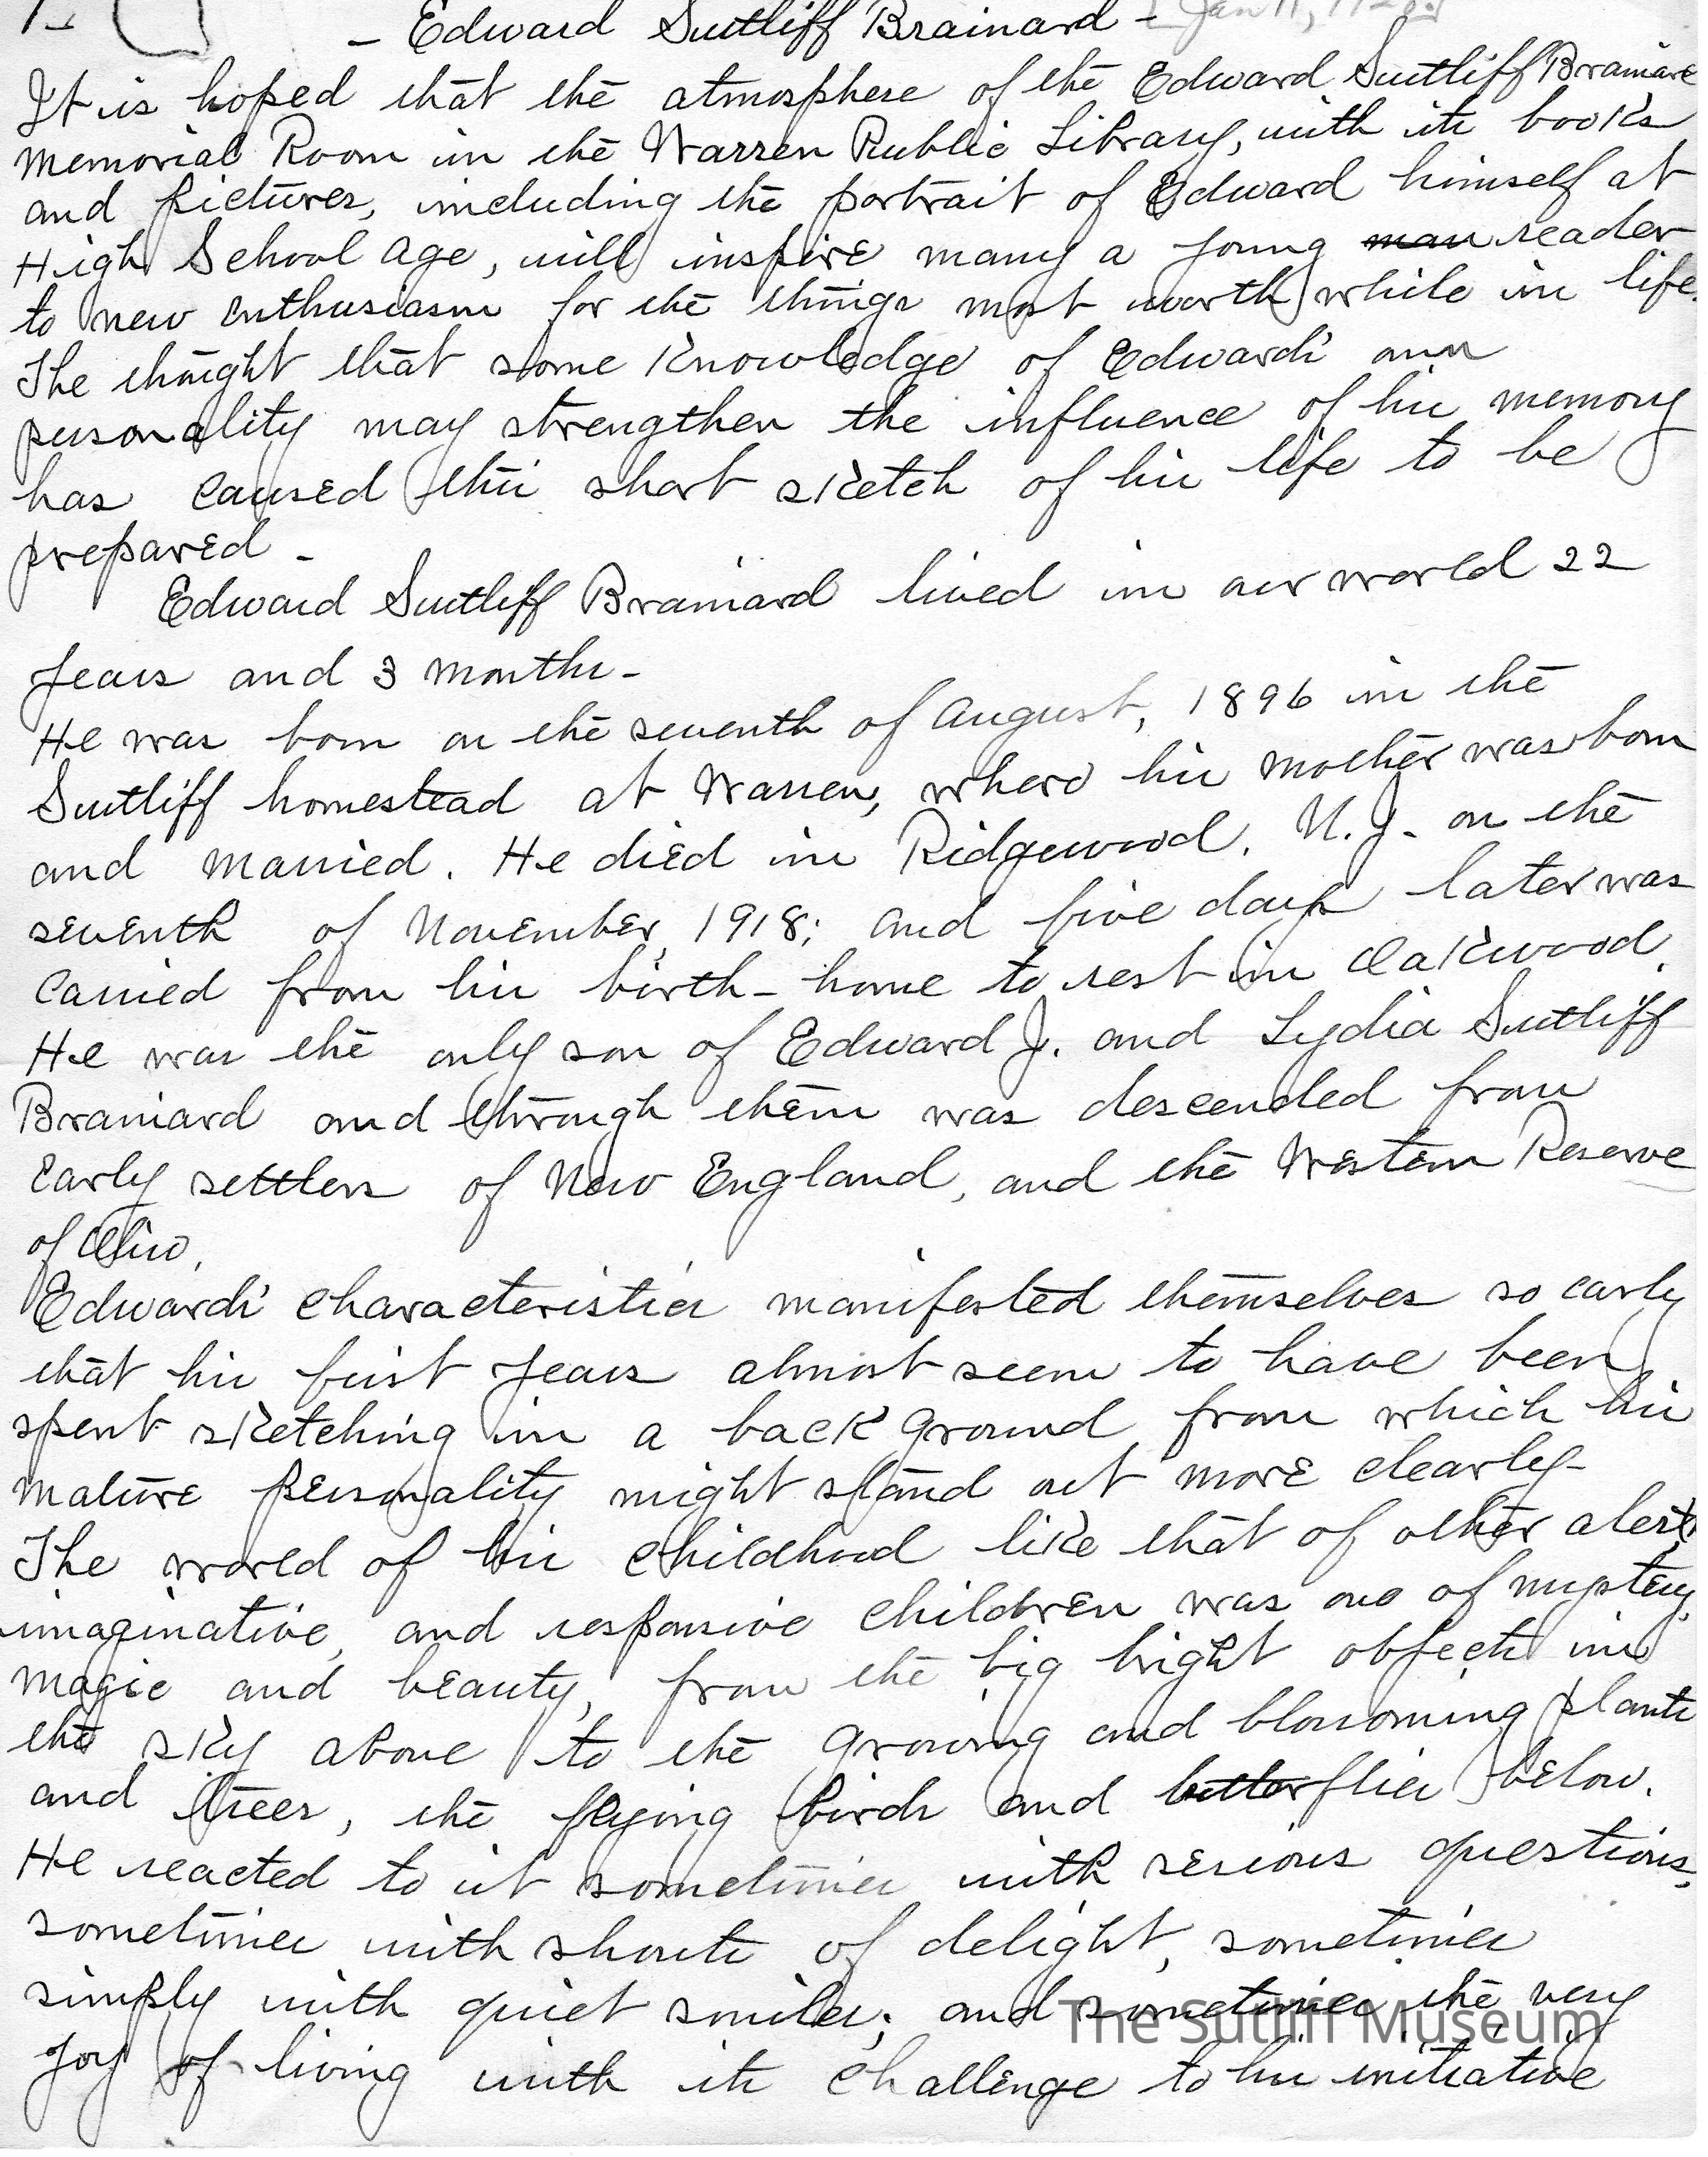 1-
- Edward Sutliff Brainard -
It is hoped that the atmosphere of the Edward Sutliff Brainard
Memorial Room in the Warren Public Library, with its books
and pictures, including the portrait of Edward himself at
High School age, will inspire many a young man reader
to new enthusiasm for the things most worth while in life.
The thought that some knowledge of Edward's own
personality may strengthen the influence of his memory
has caused this short sketch of his life to be
prepared -
Edward Sutliff Brainard lived in our world 22
years and 3 months -
He was born on the seventh of August, 1896 in the
Sutliff homestead at Warren, where his mother was born
and married. He died in Ridgewood, N.J. on the
seventh of November, 1918; and five days later was
carried from his birth-home to rest in Oakwood.
He was the only son of Edward J. and Lydia Sutliff
Brainard and through them was descended from
early settlers of New England, and the Western Reserve
of Ohio.
Edward's characteristics manifested themselves so early
that his first years almost seem to have been
spent sketching in a back ground from which his
mature personality might stand out more clearly -
The world of his childhood like that of other alert,
imaginative, and responsive children was one of mystery,
magic and beauty, from the big bright objects in
the sky above to the growing and blossoming plants
and trees, the flying birds and butterflies below.
He reacted to it sometimes with serious questions,
sometimes with shouts of delight, sometimes
simply with quiet smiles; and sometimes the very
joy of living with its challenge to his initiative
The Sutliff Museum